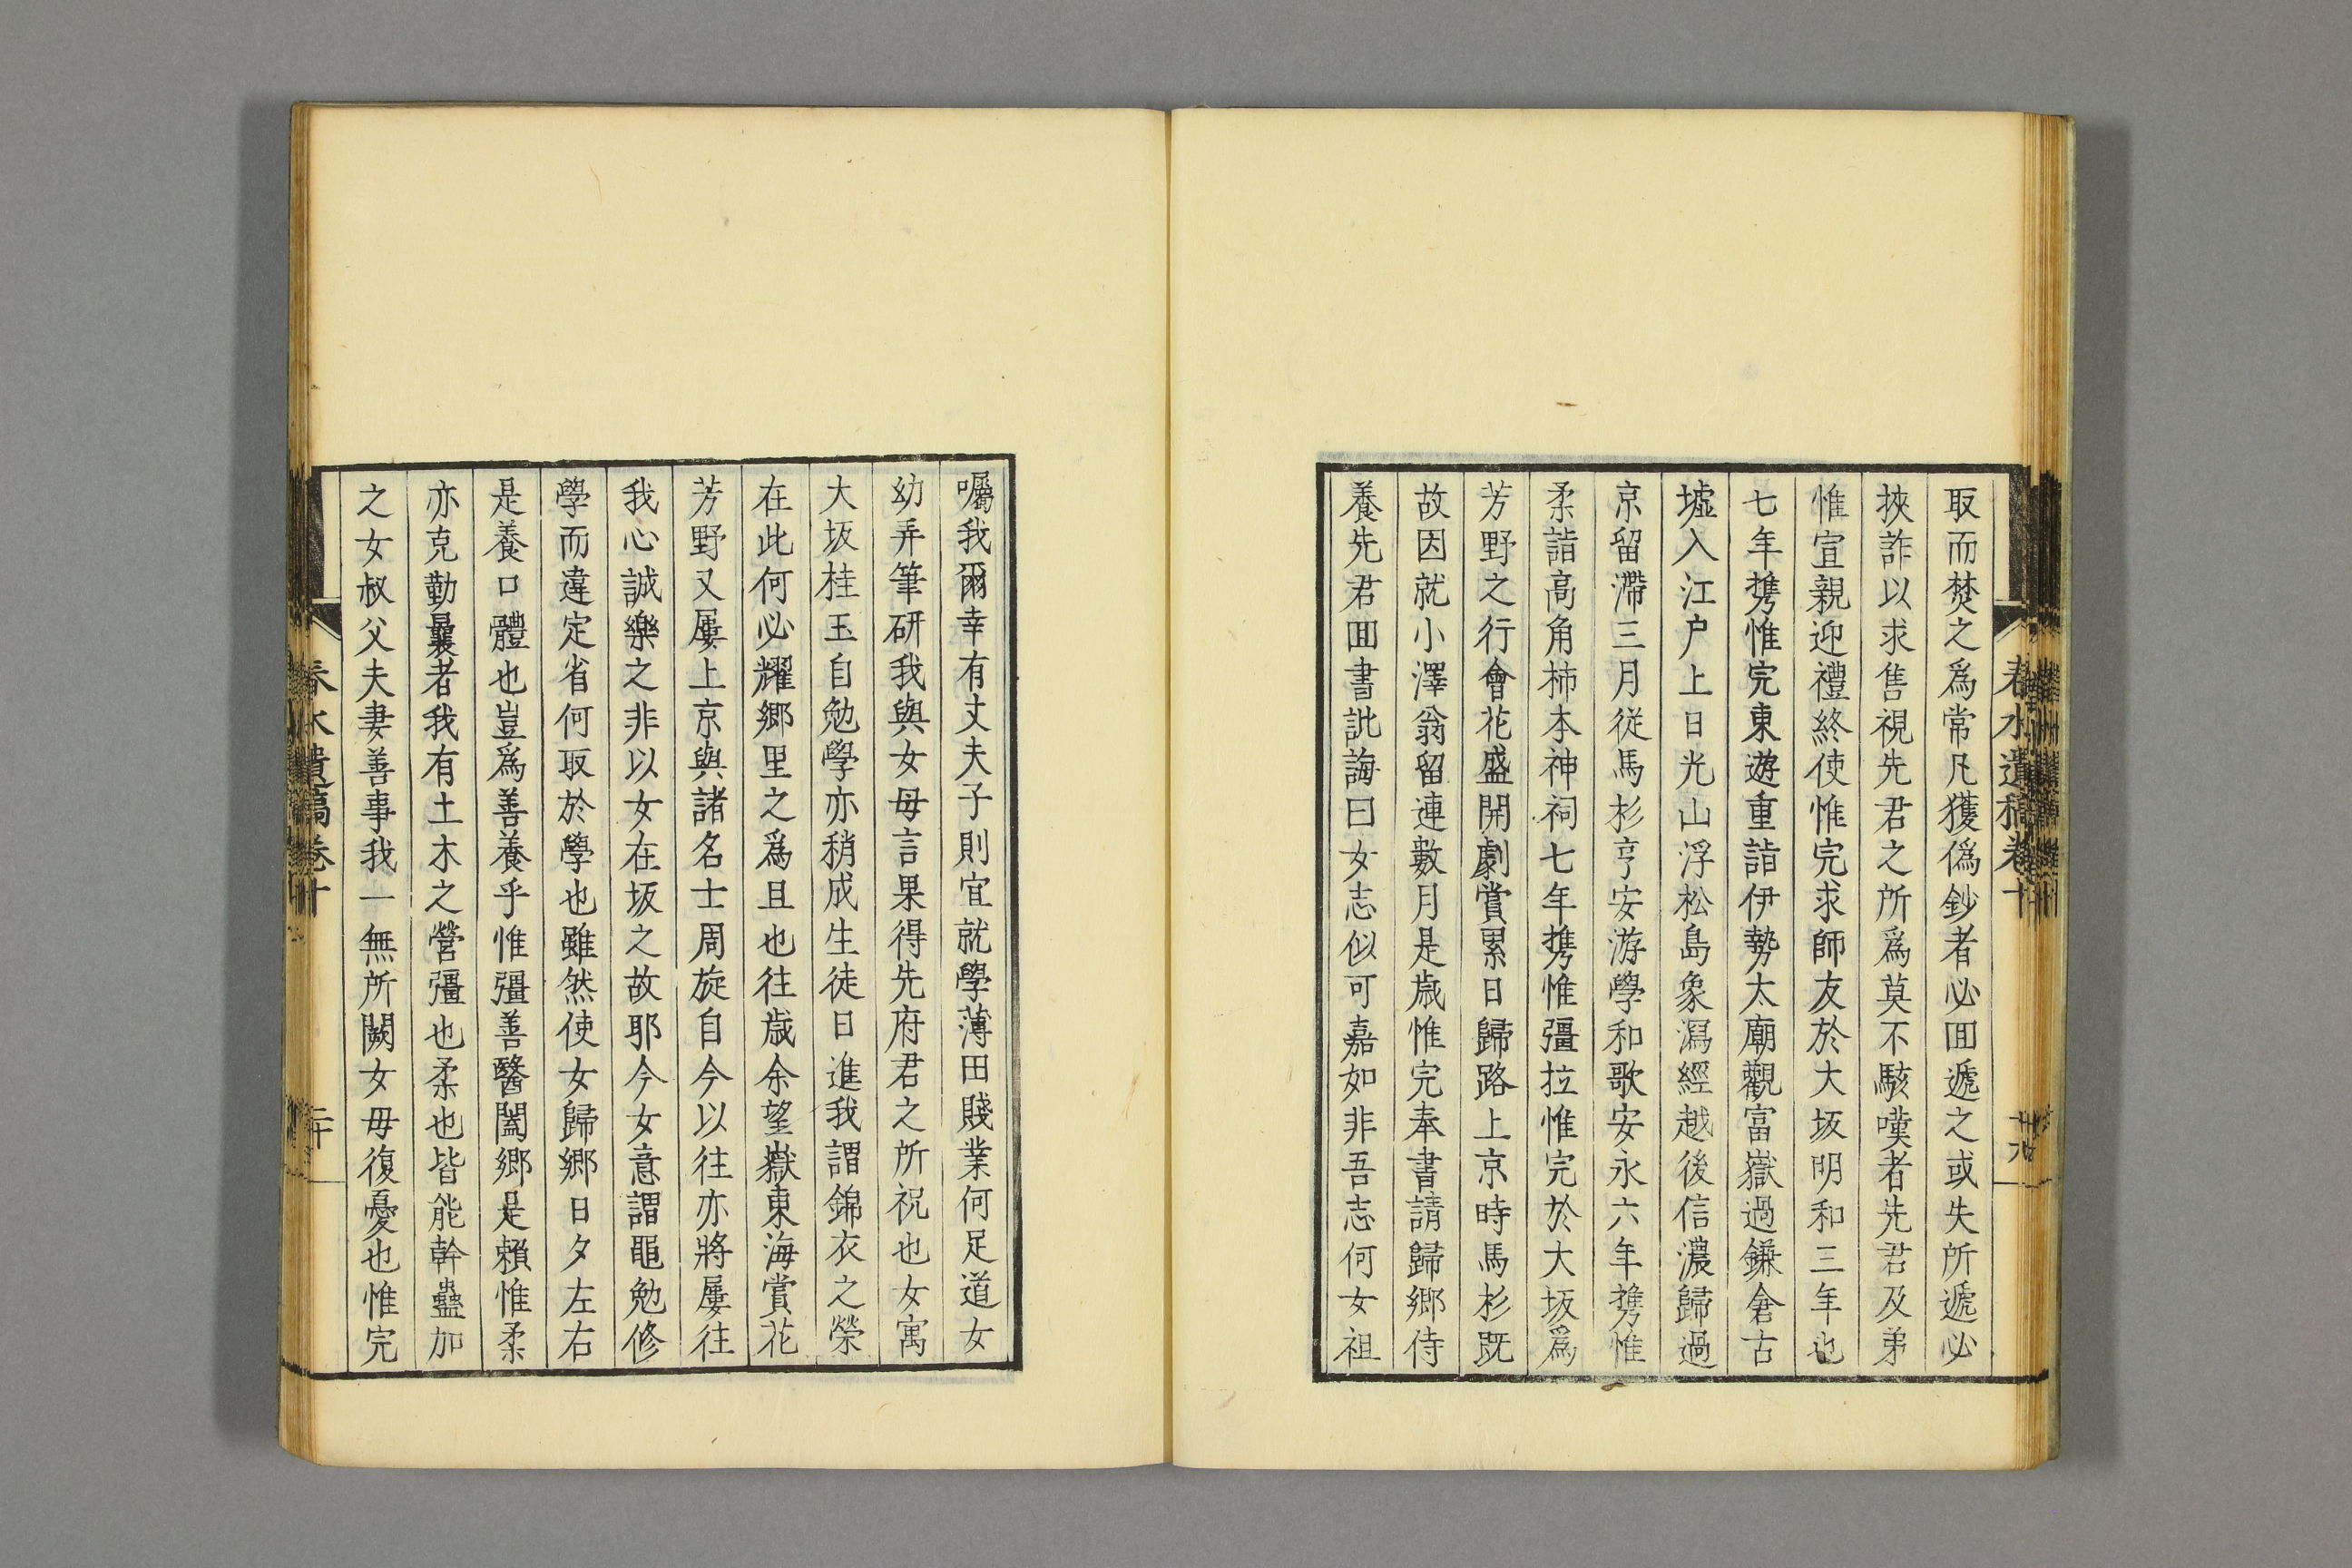 取而焚之爲常凡獲僞鈔者必囬遞之或失所遞必
挾詐以求售視先君之所爲莫不駭嘆者先君及弟
惟宣親迎禮終使惟完求師友於大坂明和三年也
七年携惟完東遊重詣伊勢太廟觀富嶽過鎌倉古
墟入江戸上日光山浮松島象潟經越後信濃歸過
京留滯三月從馬杉亨安游學和歌安永六年携惟
柔詣高角柿本神祠七年携惟彊拉惟完於大坂爲
芳野之行會花盛開劇賞累日歸路上京時馬杉既
故因就小澤翁留連數月是歲惟完奉書請歸鄉侍
養先君囬書訛誨曰女志似可嘉如非吾志何女祖
春水遺稿卷十
十九
囑我爾幸有丈夫子則宜就學薄田賤業何足道女
幼弄筆研我與女母言果得先府君之所祝也女寓
大坂桂玉自勉學亦稍成生徒日進我謂錦衣之榮
在此何必耀鄉里之爲且也往歲余望嶽東海賞花
芳野又屢上京與諸名士周旋自今以往亦將屢往
我心誠樂之非以女在坂之故耶今女意謂黽勉修
學而違定省何取於學也雖然使女歸鄉日夕左右
是養口體也豈爲善養乎惟彊善醫闔鄉是賴惟柔
亦克勤曩者我有土木之營彊也柔也皆能幹蠱加
之女叔父夫妻善事我一無所闕女毋復憂也惟完
春水遺稿卷十
二十